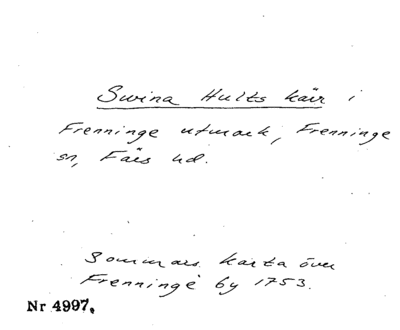 Swina Hults kärr i
Frenninge utmark, Frenninge
sn, Färs hd.
Sommars karta över
Frenninge by 1753.
Nr 4997.